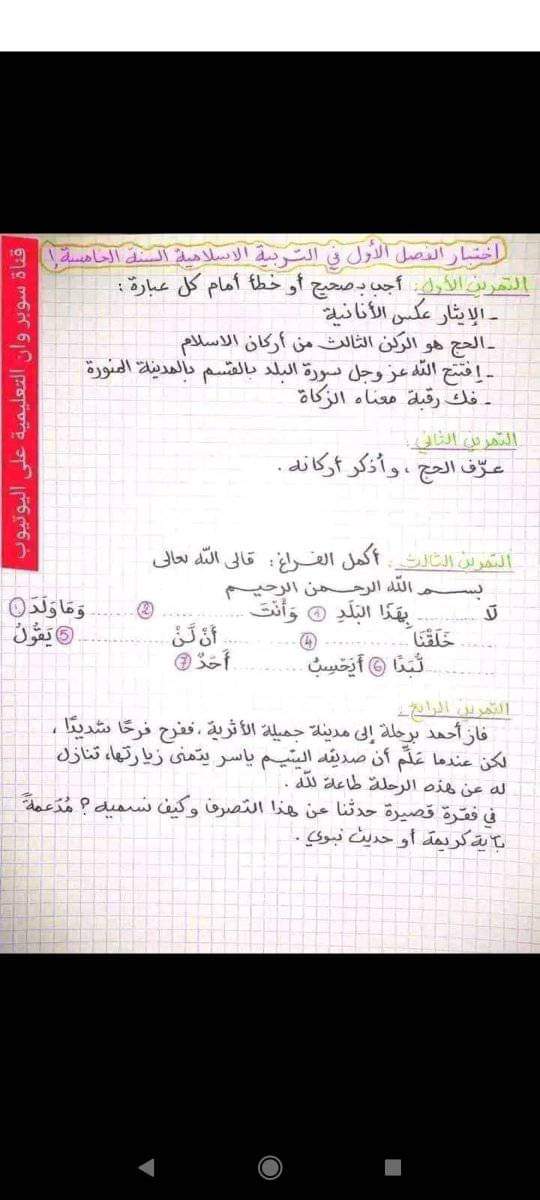 اختبار الفصل الأول في التربية الاسلامية السنة الخامسة!
التمرين الأول: أجب بـ صحيح أو خطأ أمام كل عبارة:
- الإيثار عكس الأنانية
- الحج هو الركن الثالث من أركان الاسلام
- إفتتح الله عز وجل سورة البلد بالقسم بالمدينة المنورة
- فك رقبة معناه الزكاة
التمرين الثاني:
عرّف الحج، وأذكر أركانه.
التمرين الثالث: أكمل الفراغ: قالى الله تعالى
بسم الله الرحمن الرحيم
لَا .......... بِهَذَا البَلَدِ ① وَأَنْتَ .......... ② .......... وَمَا وَلَدَ ③
.......... خَلَقْنَا .......... ④ .......... أَنْ لَّنْ .......... ⑤ يَقُولُ
.......... لُّبَدًا ⑥ أَيَحْسِبُ .......... أَحَدٌ ⑦
التمرين الرابع:
فاز أحمد برحلة إلى مدينة جميلة الأثرية، ففرح فرحًا شديدًا،
لكن عندما عَلِم أن صديقه اليتيم ياسر يتمنى زيارتها، تنازل
له عن هذه الرحلة طاعة لله.
في فقرة قصيرة حدثنا عن هذا التصرف وكيف نسميه؟ مُدَعمةً
بآية كريمة أو حديث نبوي.
قناة سوبر وان التعليمية على اليوتيوب